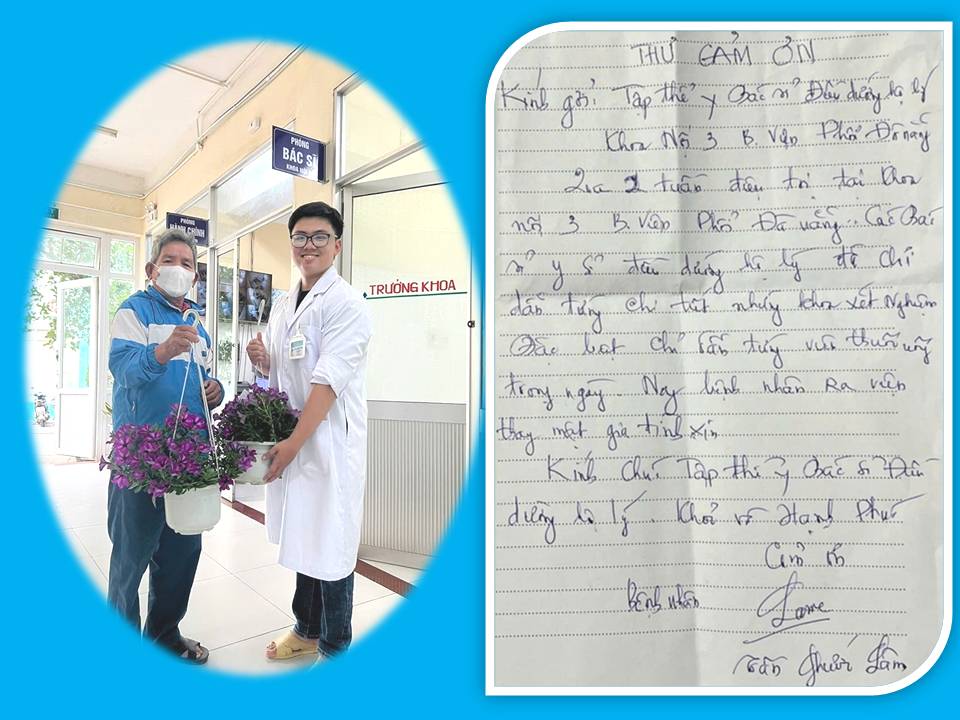 PHÒNG
BÁC SĨ
KHOA NỘI
PHÒNG
HÀNH CHÍNH
TRƯỞNG KHOA
THƯ CẢM ƠN
Kính gởi: Tập thể y Bác sĩ Điều dưỡng hộ lý
Khoa Nội 3 B. Viện Phổi Đà nẵng
Qua 2 tuần điều trị tại khoa
nội 3 B. Viện Phổi Đà nẵng. Các Bác
sĩ y sĩ điều dưỡng hộ lý đã chỉ
dẫn từng chi tiết những khoa xét Nghiệm
Đặc biệt chỉ dẫn từng viên thuốc uống
trong ngày. Nay bệnh nhân Ra viện
thay mặt gia đình xin
Kính Chúc Tập thể y Bác sĩ Điều
dưỡng hộ lý. Khỏe và Hạnh Phúc
Cảm ơn
Bệnh nhân
Phước Lâm